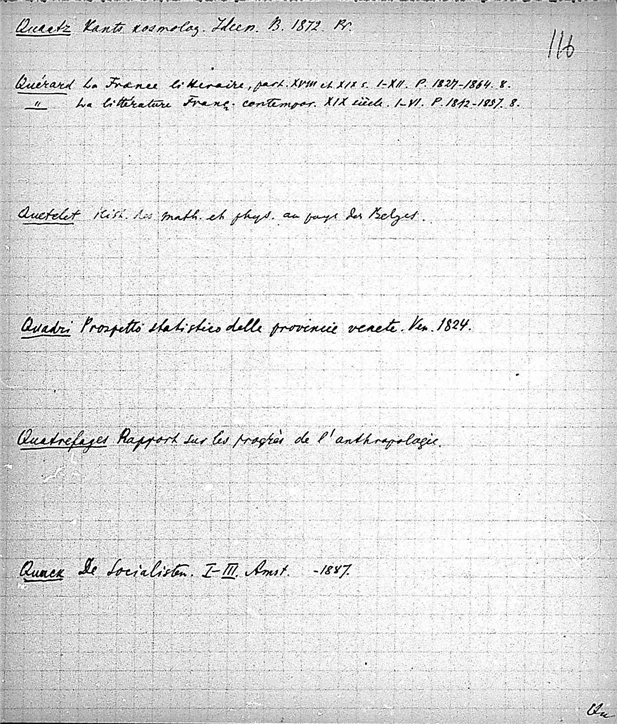 Quaatz Kants kosmolog. Ideen. B. 1872. Pr.
116
Quérard La France littéraire, part. XVIII et XIX s. I-XII. P. 1827-1864. 8.
" La littérature Franç. contempor. XIX siècle. I-VI. P. 1842-1857. 8.
Quetelet Hist. des math. et phys. au pays des Belges.
Quadri Prospetto statistico delle provincie venete. Ven. 1824.
Quatrefages Rapport sur les progrès de l'anthropologie.
Quack De Socialisten. I-III. Amst. -1887.
Qu